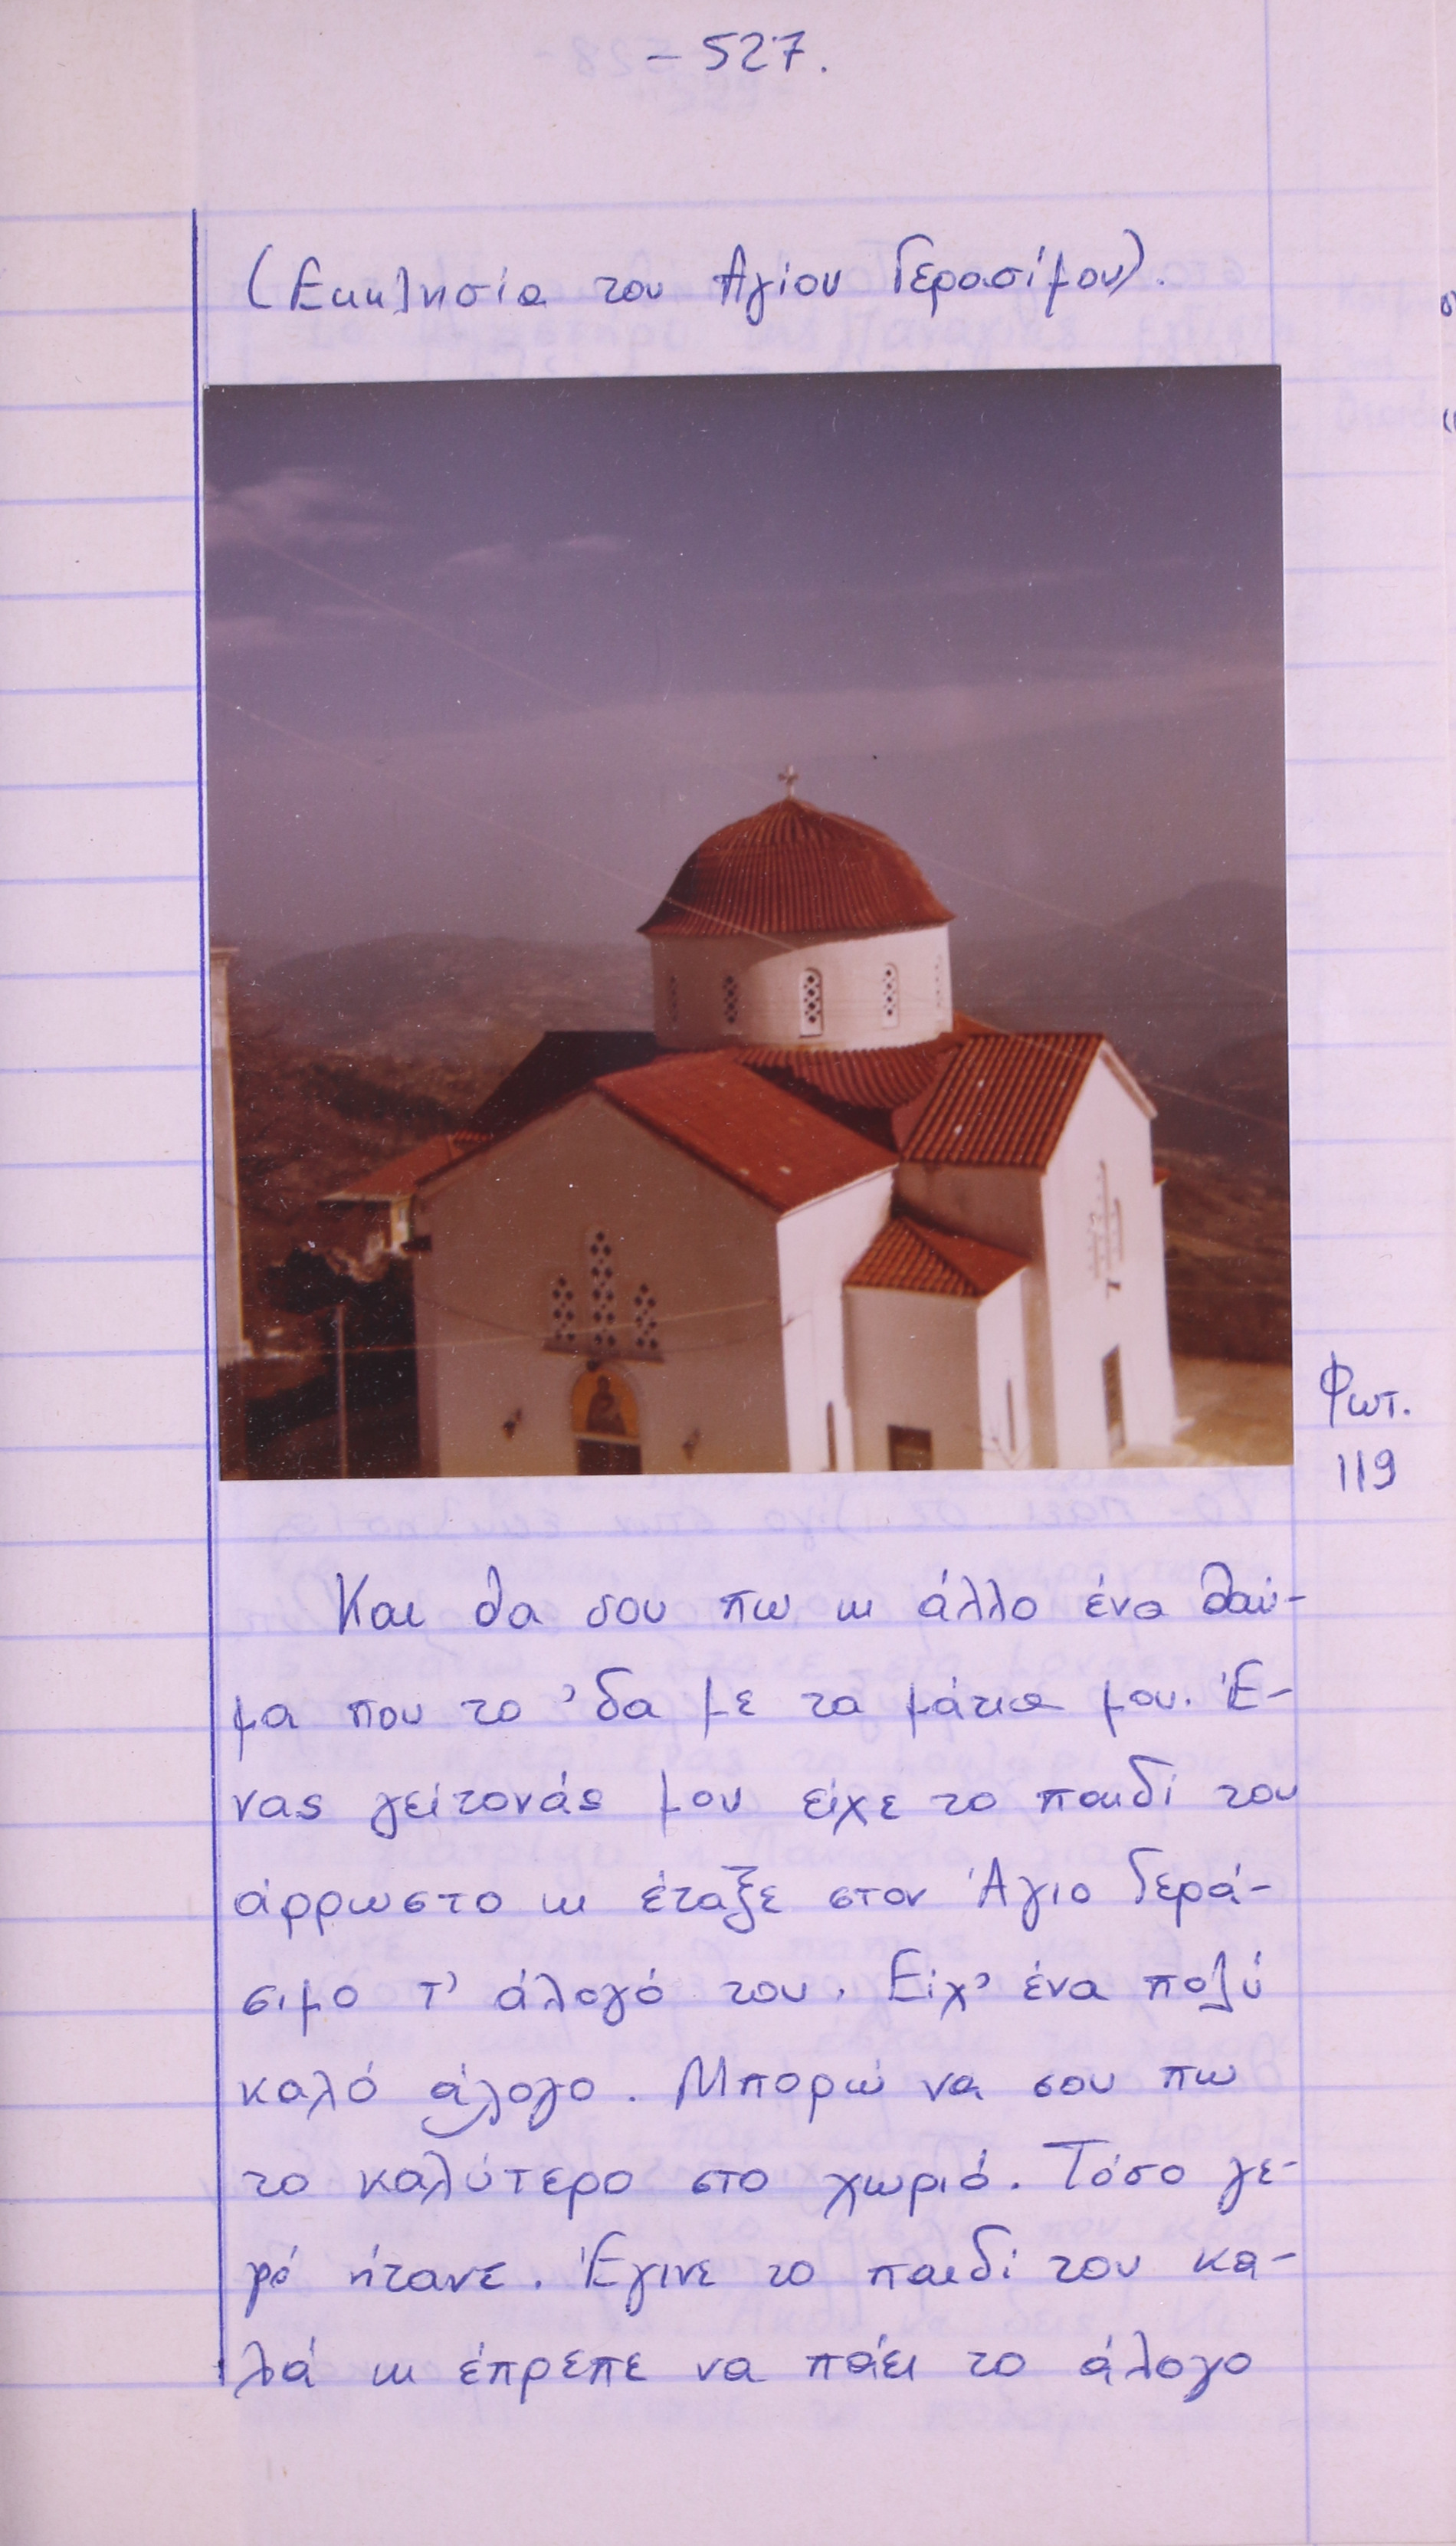 - 527.
(Εκκλησία του Αγίου Γερασίμου).
Φωτ.
119
Και θα σου πω κι άλλο ένα θαύ-
μα που το 'δα με τα μάτια μου. Έ-
νας γείτονάς μου είχε το παιδί του
άρρωστο κι έταξε στον Άγιο Γερά-
σιμο τ' άλογό του. Είχ' ένα πολύ
καλό άλογο. Μπορώ να σου πω
το καλύτερο στο χωριό. Τόσο γε-
ρό ήτανε. Έγινε το παιδί του κα-
λά κι έπρεπε να πάει το άλογο